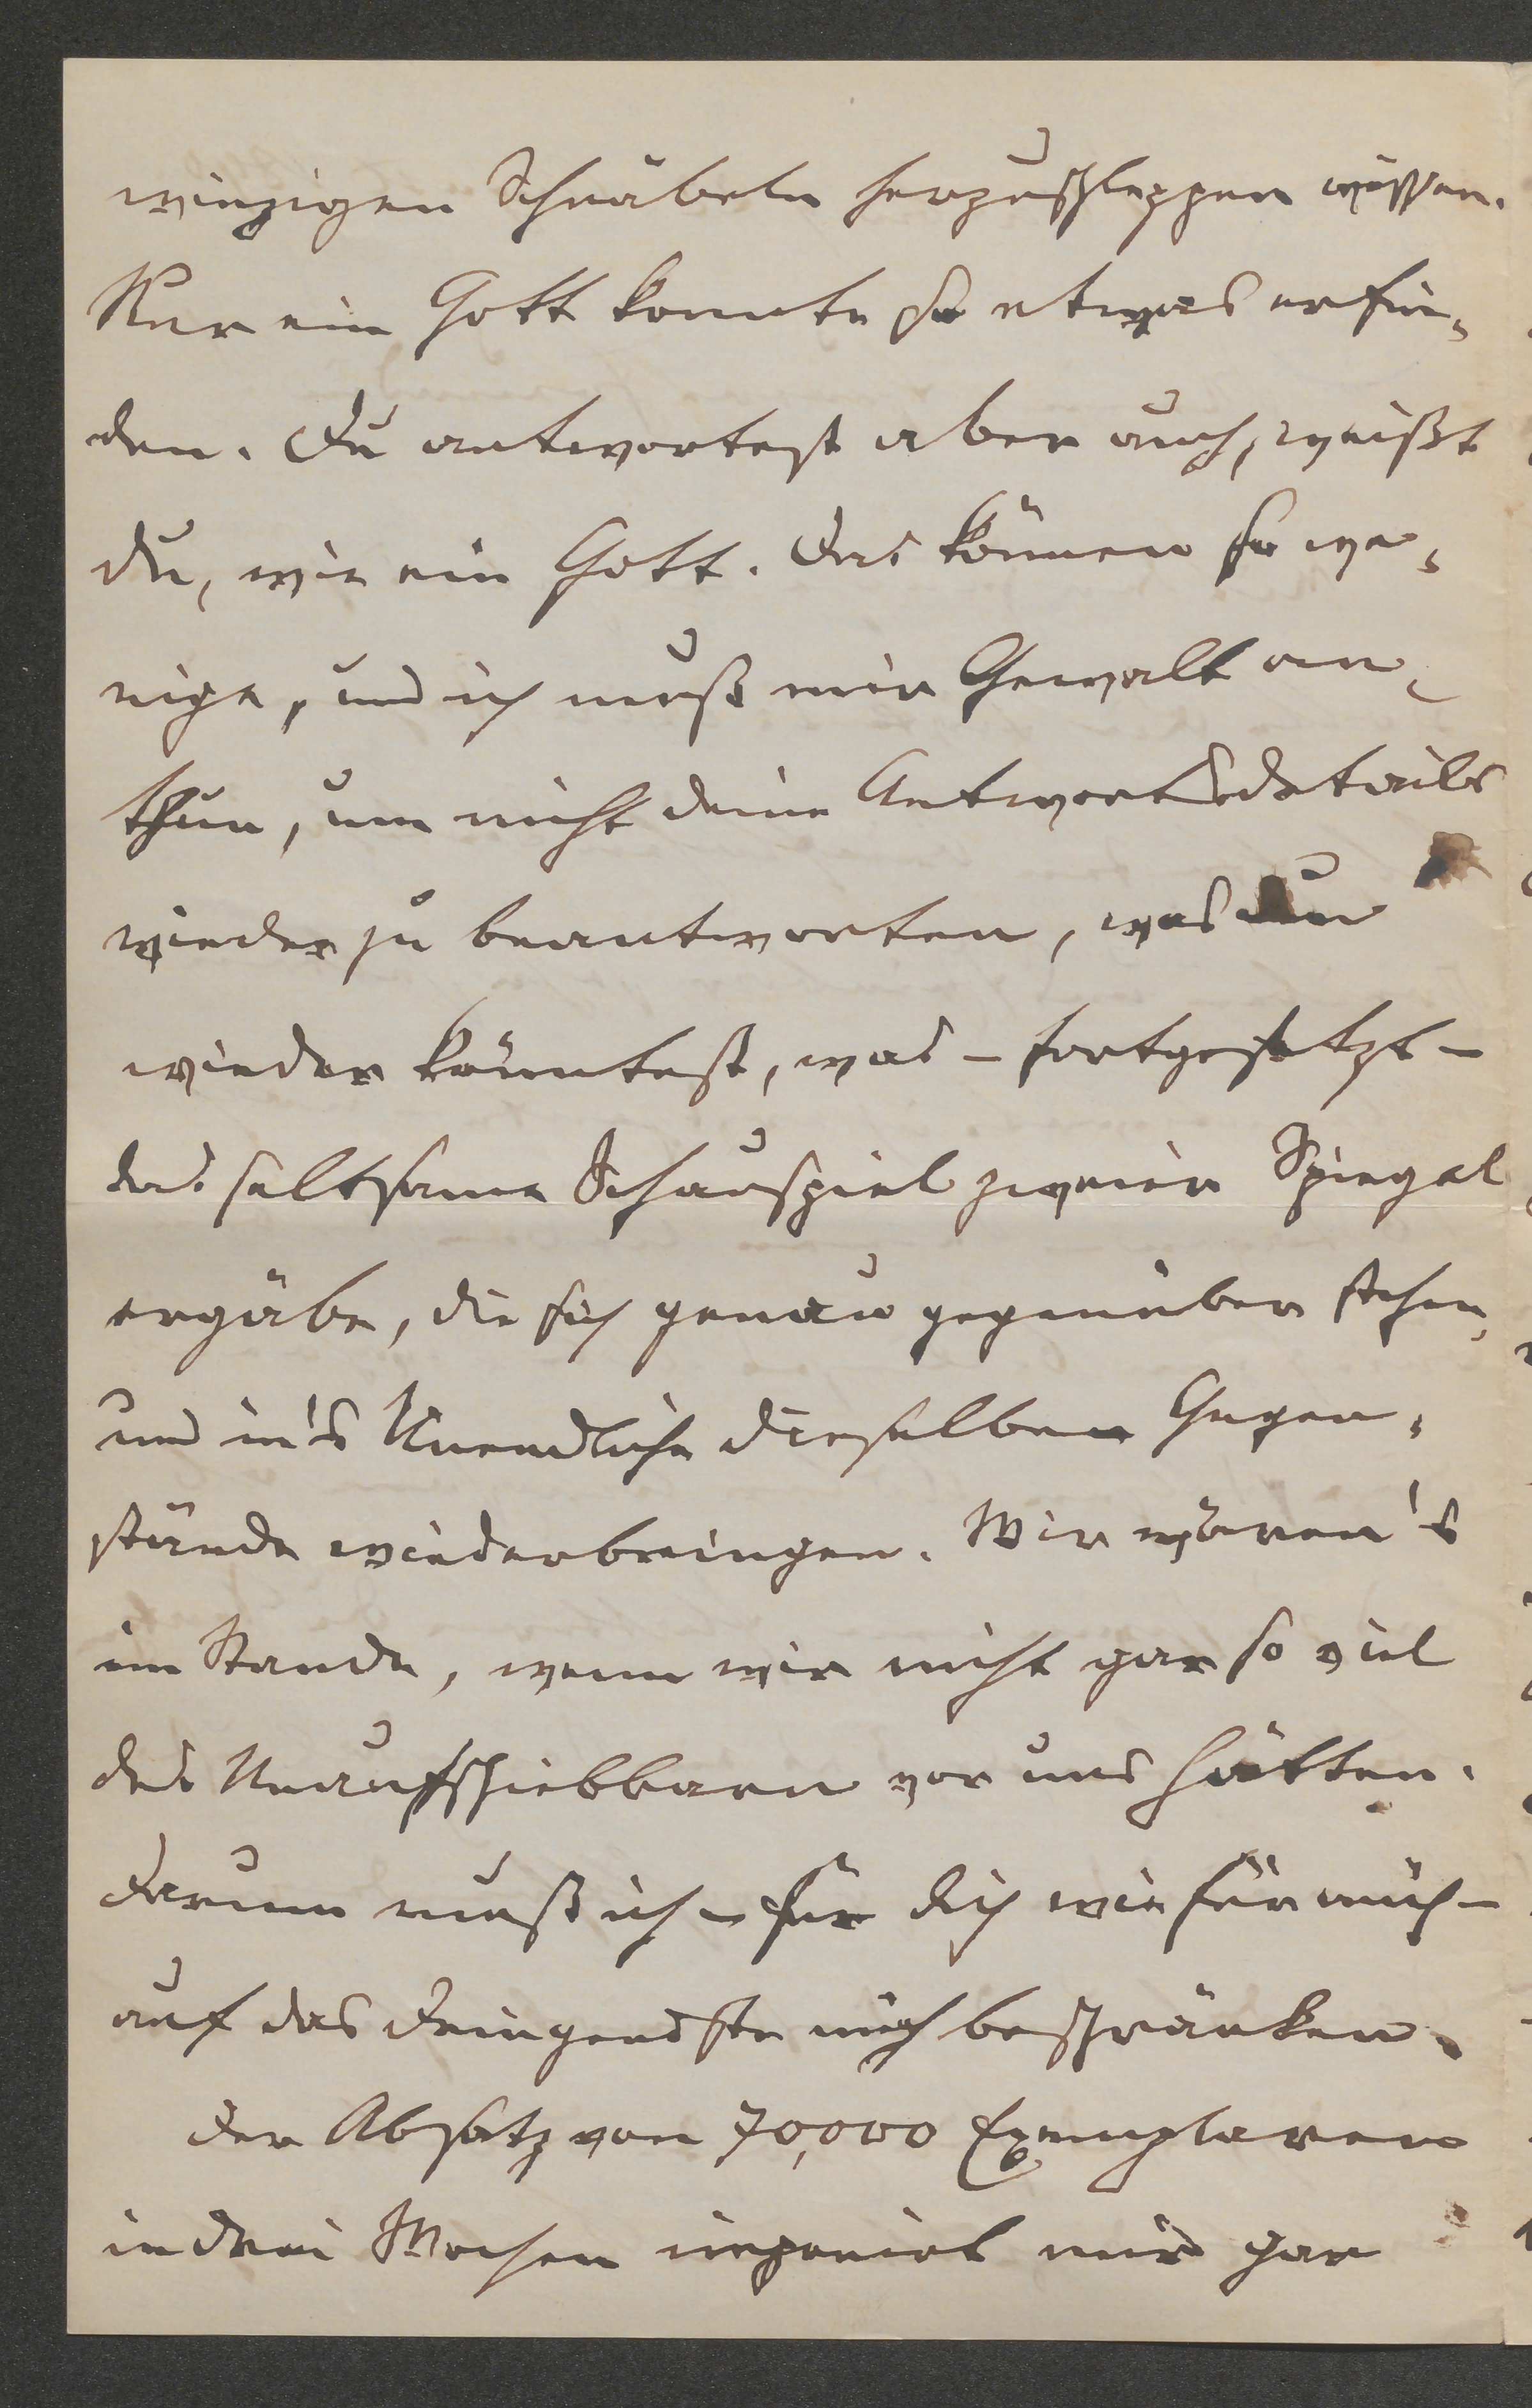 winzigen Schnäbeln herzuschleppen wissen.
Nur ein Gott konnte so etwas erfin-
den. Du antwortest aber auch, weißt
du, wie ein Gott. Das können so we-
nige, und ich muß mir Gewalt an-
thun, um nicht deine Antwortsdetails
wieder zu beantworten, was du
wieder könntest, was – fortgesetzt –
das seltsame Schauspiel zweier Spiegel
ergäbe, die sich genau gegenüber stehen,
und in's Unendliche dieselben Gegen-
stände wiederbringen. Wir wären's
im Stande, wenn wir nicht gar so viel
des Unaufschiebbaren vor uns hätten.
Darum muß ich – für dich wie für mich –
auf das Dringendste mich beschränken.
Der Absatz von 70,000 Exemplaren
in drei Wochen imponirt mir gar